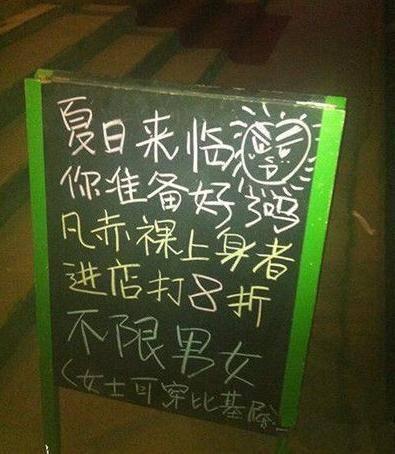 夏日来临
你准备好了吗
凡赤裸上身者
进店打8折
不限男女
(女士可穿比基